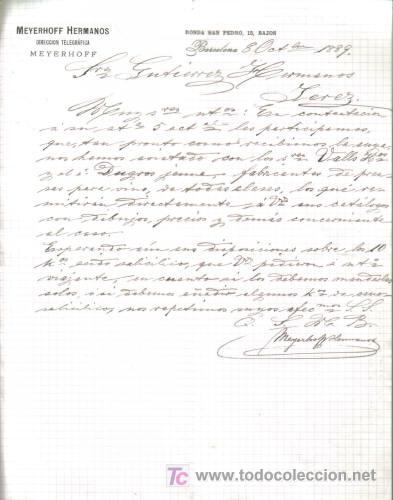 MEYERHOFF HERMANOS
DIRECCION TELEGRÁFICA
MEYERHOFF
RONDA SAN PEDRO, 15, BAJOS
Barcelona 8 Octbre 1889.
Srs Gutierrez Hermanos
Jerez.
En contestacion
á su 5 act les participamos,
que, tan pronto como recibimos la suya,
nos hemos con los Sres Valls Hos
y el Sr Dugros fabricantes de pren-
sas para vino, de todas clases, los que re-
mitirán directamente á Vds sus catálogos
con dibujos, precios y demás concerniente
al caso.
Esperando aun sus disposiciones sobre los 10
Ks ácido salicílico, que Vd pidieron á
viajante, en cuanto si los debemos mandarles
solos, ó si debemos añadir algunos Ks de
salicílico, nos repetimos suyos afec mos S. S.
Q. S. M. B.
Meyerhoff Hermanos
TC
www.todocoleccion.net